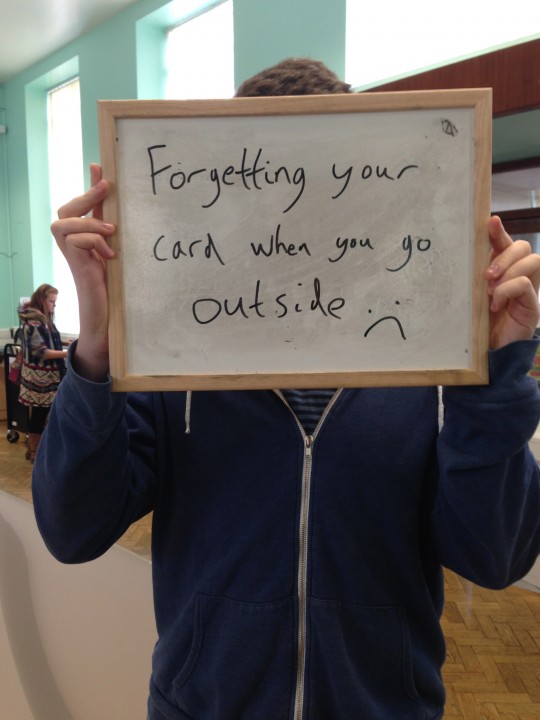 Forgetting your
card when you go
outside :(